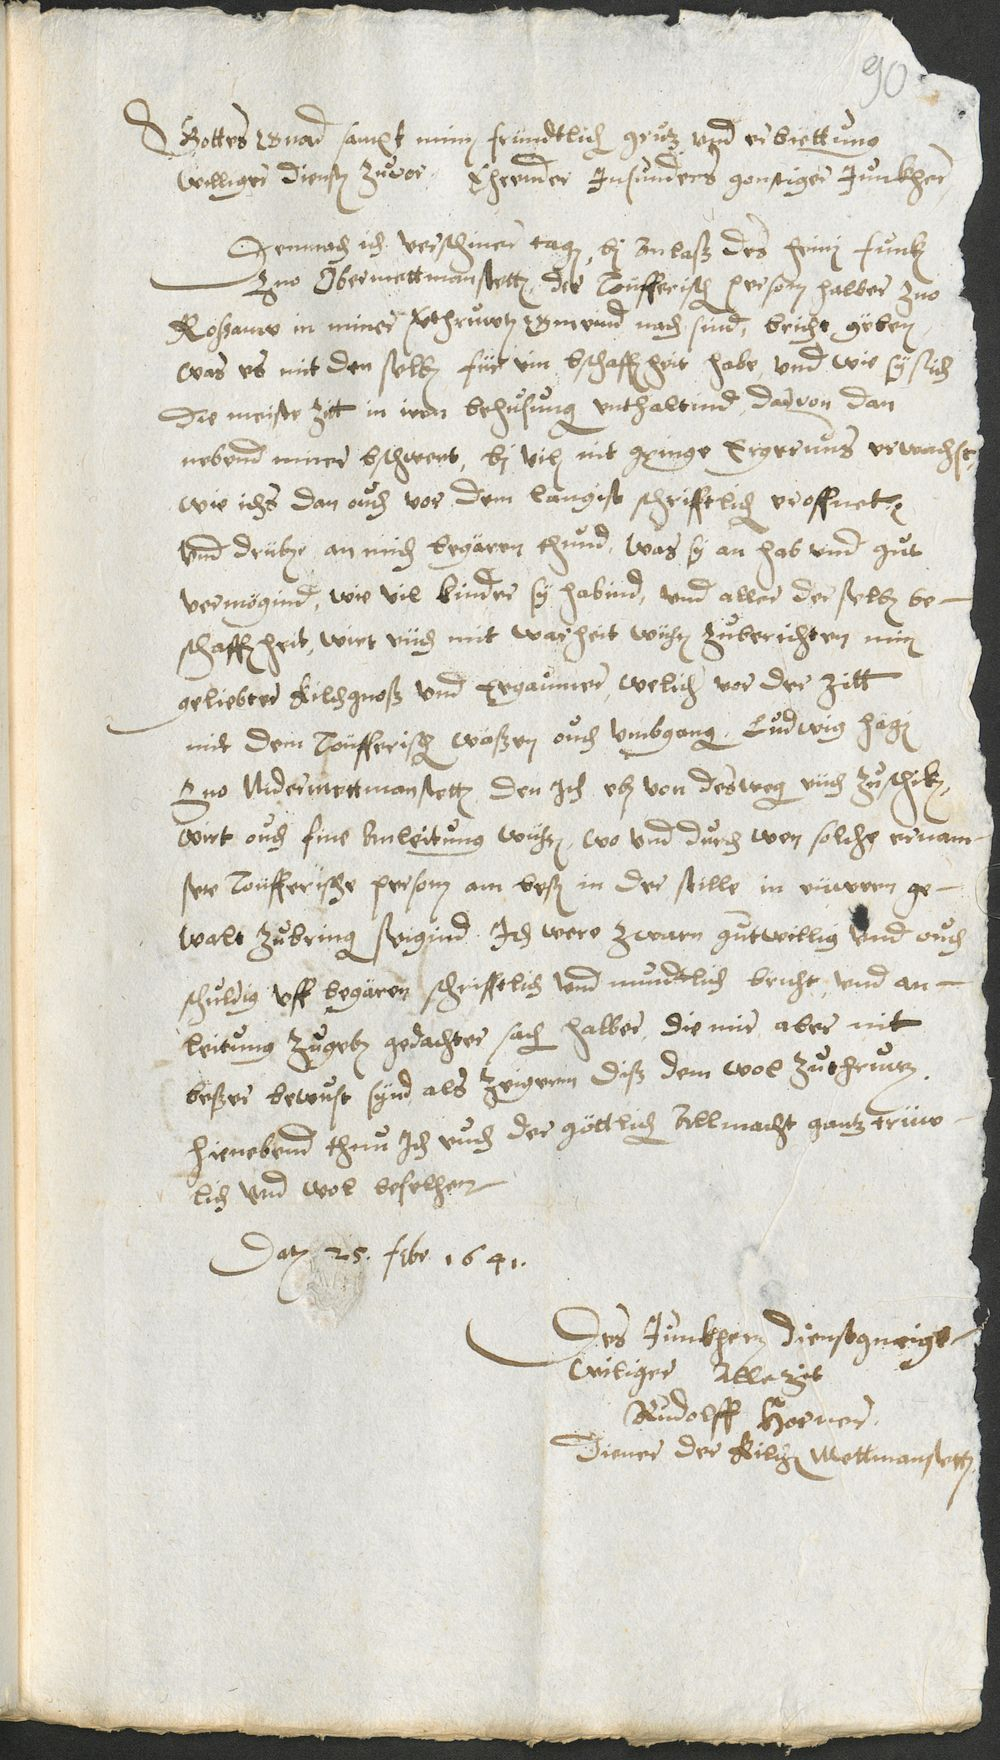 90
Gottes gnad sampt minen fründtlichen gruͦtz vnd erbiettung
williger diensten zuͦvor. Ehrender Insunders gonstiger Junkherr,
Demnach ich verschiner tagen, bj anlass des heini funken
zuo Obermettmanstetten, der Toüfferischen personen halber zuo
Rossauw in miner gmeind noch sind, bricht geben,
was es mit den selben für ein bschaffenheit habe, vnd wie sy sich
die meiste Zitt in iren behusung enthaltind, davon dan
nebend miner bschwert, bj vilen nit gringe Ergernus erwachst,
wie ichs dan ouch vor dem langist schrifftlich eroffnet,
vnd an mich begären thund, was sy an hab vnd guͦt
vermögind, wie vil kinder sy habind, vnd aller der selben be-
schaffenheit, wirt eüch mit warheit wüssen zuͦberichten min
geliebter kilchgnoss vnd Ergaumer, welicher vor der Zitt
mit dem Toüfferischen wässen ouch vmbgangen, Ludwig hägi
zuo Nidermettmanstetten den Ich eben von desswegen eüch zuͦschiken,
wirt ouch fine anleitung wüssen, wo vnd durch wen solche ernam-
sete Toüfferische personen am besten in der stille in eüweren ge-
walt zuͦbringen seigind. Ich were zwarn guͦtwillig vnd ouch
schuldig vff begären schrifftlich vnd mundtlich bricht vnd an-
leitung zuͦgeben gedachter sach halber, die mir aber nit
besser bewust sind als Zeigern diss dem wol zuͦthruwen.
hienebend thuo Ich euch der göttlichen Allmacht gantz trüw-
lich vnd wol befelhen
Datum 25. febr. 1641.
Des Junkheren dienstgneigt
williger alle Zit
Rudolff Horner.
Diener der kilchen Mettmanstetten.